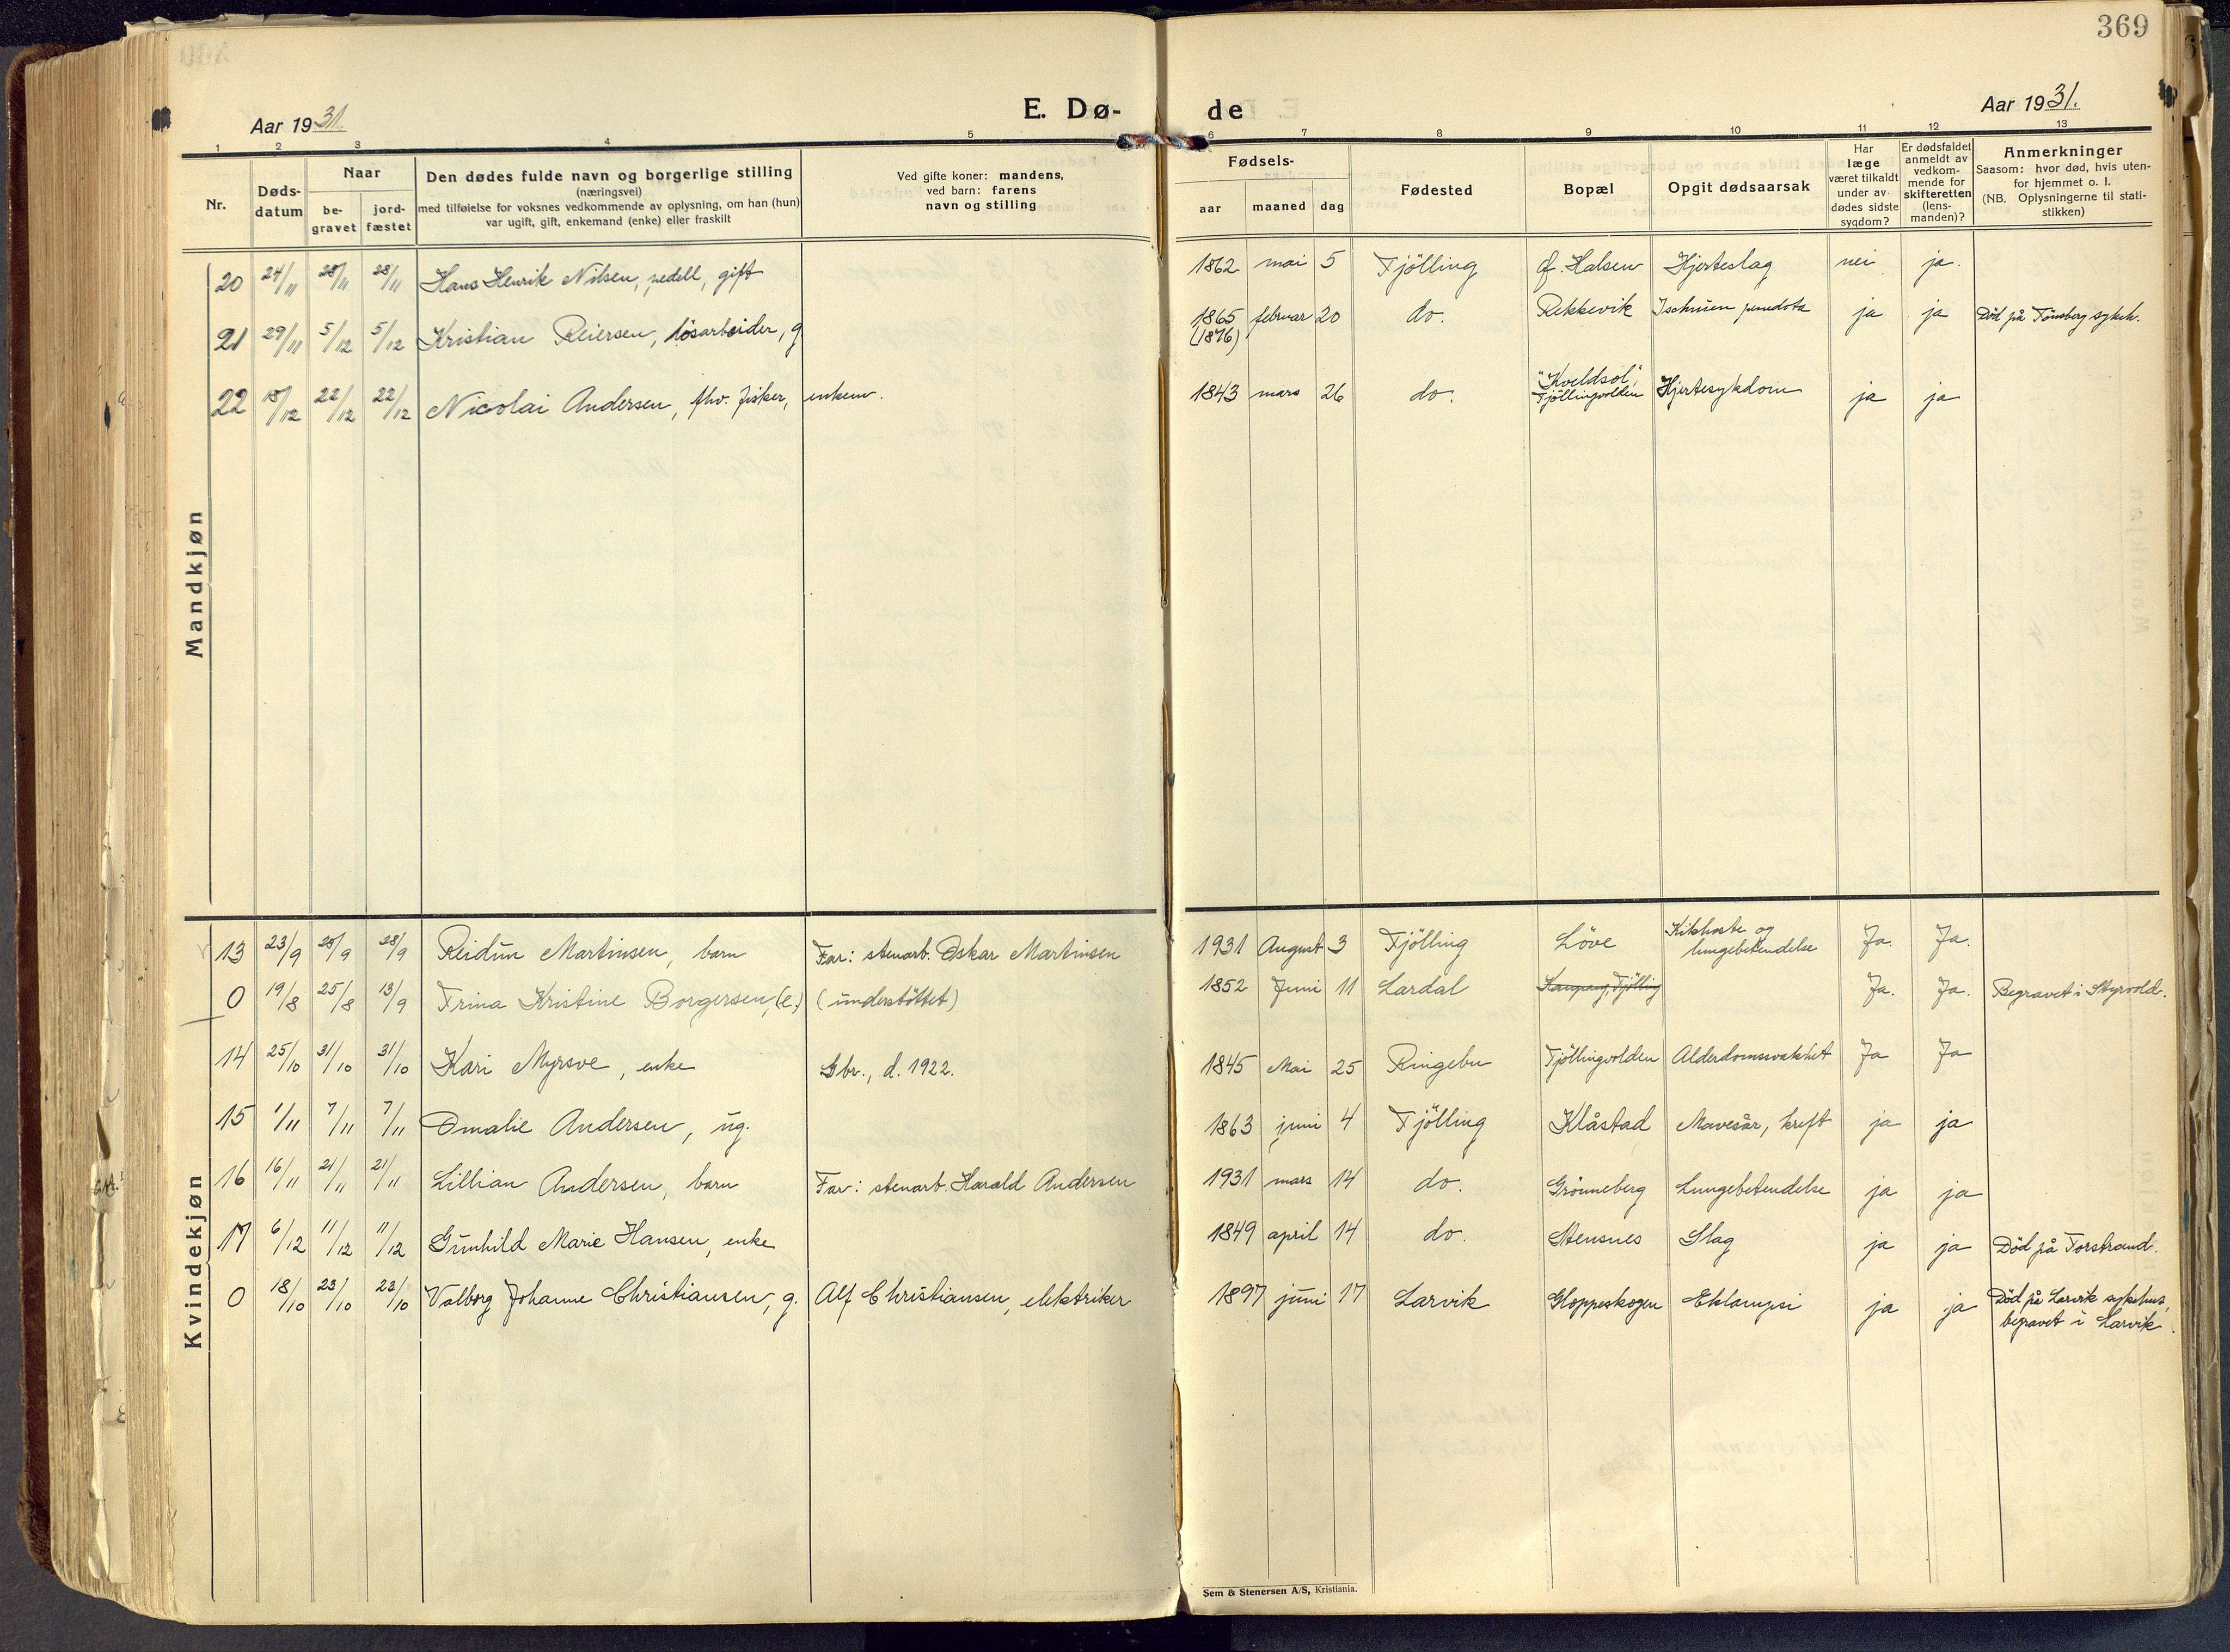 369
Aar 1931.
E. Dø-
de
Aar 1931.
1 2 3 4 5 6 7 8 9 10 11 12 13
Nr.
Døds-
datum
Naar
be-
gravet
jord-
fæstet
Den dødes fulde navn og borgerlige stilling
(næringsvei)
med tilføielse for voksnes vedkommende av oplysning, om han (hun)
var ugift, gift, enkemand (enke) eller fraskilt
Ved gifte koner: mandens,
ved barn: farens
navn og stilling
Fødsels-
aar maaned dag
Fødested
Bopæl
Opgit dødsaarsak
Har
læge
været tilkaldt
under av-
dødes sidste
sygdom?
Er dødsfaldet
anmeldt av
vedkom-
mende for
skifteretten
(lens-
manden)?
Anmerkninger
Saasom: hvor død, hvis uten-
for hjemmet o. l.
(NB. Oplysningerne til stati-
stikken)
Mandkjøn
20 24/11 28/11 28/11 Hans Henrik Nilsen, pedell, gift 1862 mai 5 Tjölling Ø. Halsen Hjerteslag nei ja.
21 29/11 5/12 5/12 Kristian Reiersen, lösarbeider, g. 1865 februar 20 do. Rekkevik ja ja Död på Tönsberg sykeh.
(1876)
22 18/12 22/12 22/12 Nicolai Andersen, fhv. fisker, enkem. 1843 mars 26 do. "Kveldsol", Hjertesykdom ja ja
Tjöllingvolden
Kvindekjøn
13 23/9 28/9 28/9 Reidun Martinsen, barn Far: stenarb. Oskar Martinsen 1931 August 3 Tjölling Löve Kikhoste og Ja. Ja.
lungebetendelse
0 19/8 25/8 13/9 Trina Kristine Borgersen, (e.) (understöttet) 1852 Juni 11 Lardal Kaupang, Tjölling Ja. Ja. Begravet i Styrvold.
14 25/10 31/10 31/10 Kari Myrsve, enke Gbr., d. 1922. 1845 Mai 25 Ringebu Tjöllingvolden Alderdomssvakhet Ja Ja
15 1/11 7/11 7/11 Omalie Andersen, ug. 1863 juni 4 Tjölling Klåstad Mavesår, kreft ja ja
16 16/11 21/11 21/11 Lillian Andersen, barn Far: stenarb. Harald Andersen 1931 mars 14 do. Grönneberg Lungebetendelse ja ja
17 6/12 11/12 11/12 Gunhild Marie Hansen, enke 1849 april 14 do. Stensnes Slag ja ja Död på Torstrand.
0 18/10 23/10 23/10 Valborg Johanne Christiansen, g. Alf Christiansen, elektriker 1897 juni 17 Larvik Gloppeskogen Eklampsi ja ja Död på Larvik sykehus,
begravet i Larvik.
Sem & Stenersen A/S, Kristiania.